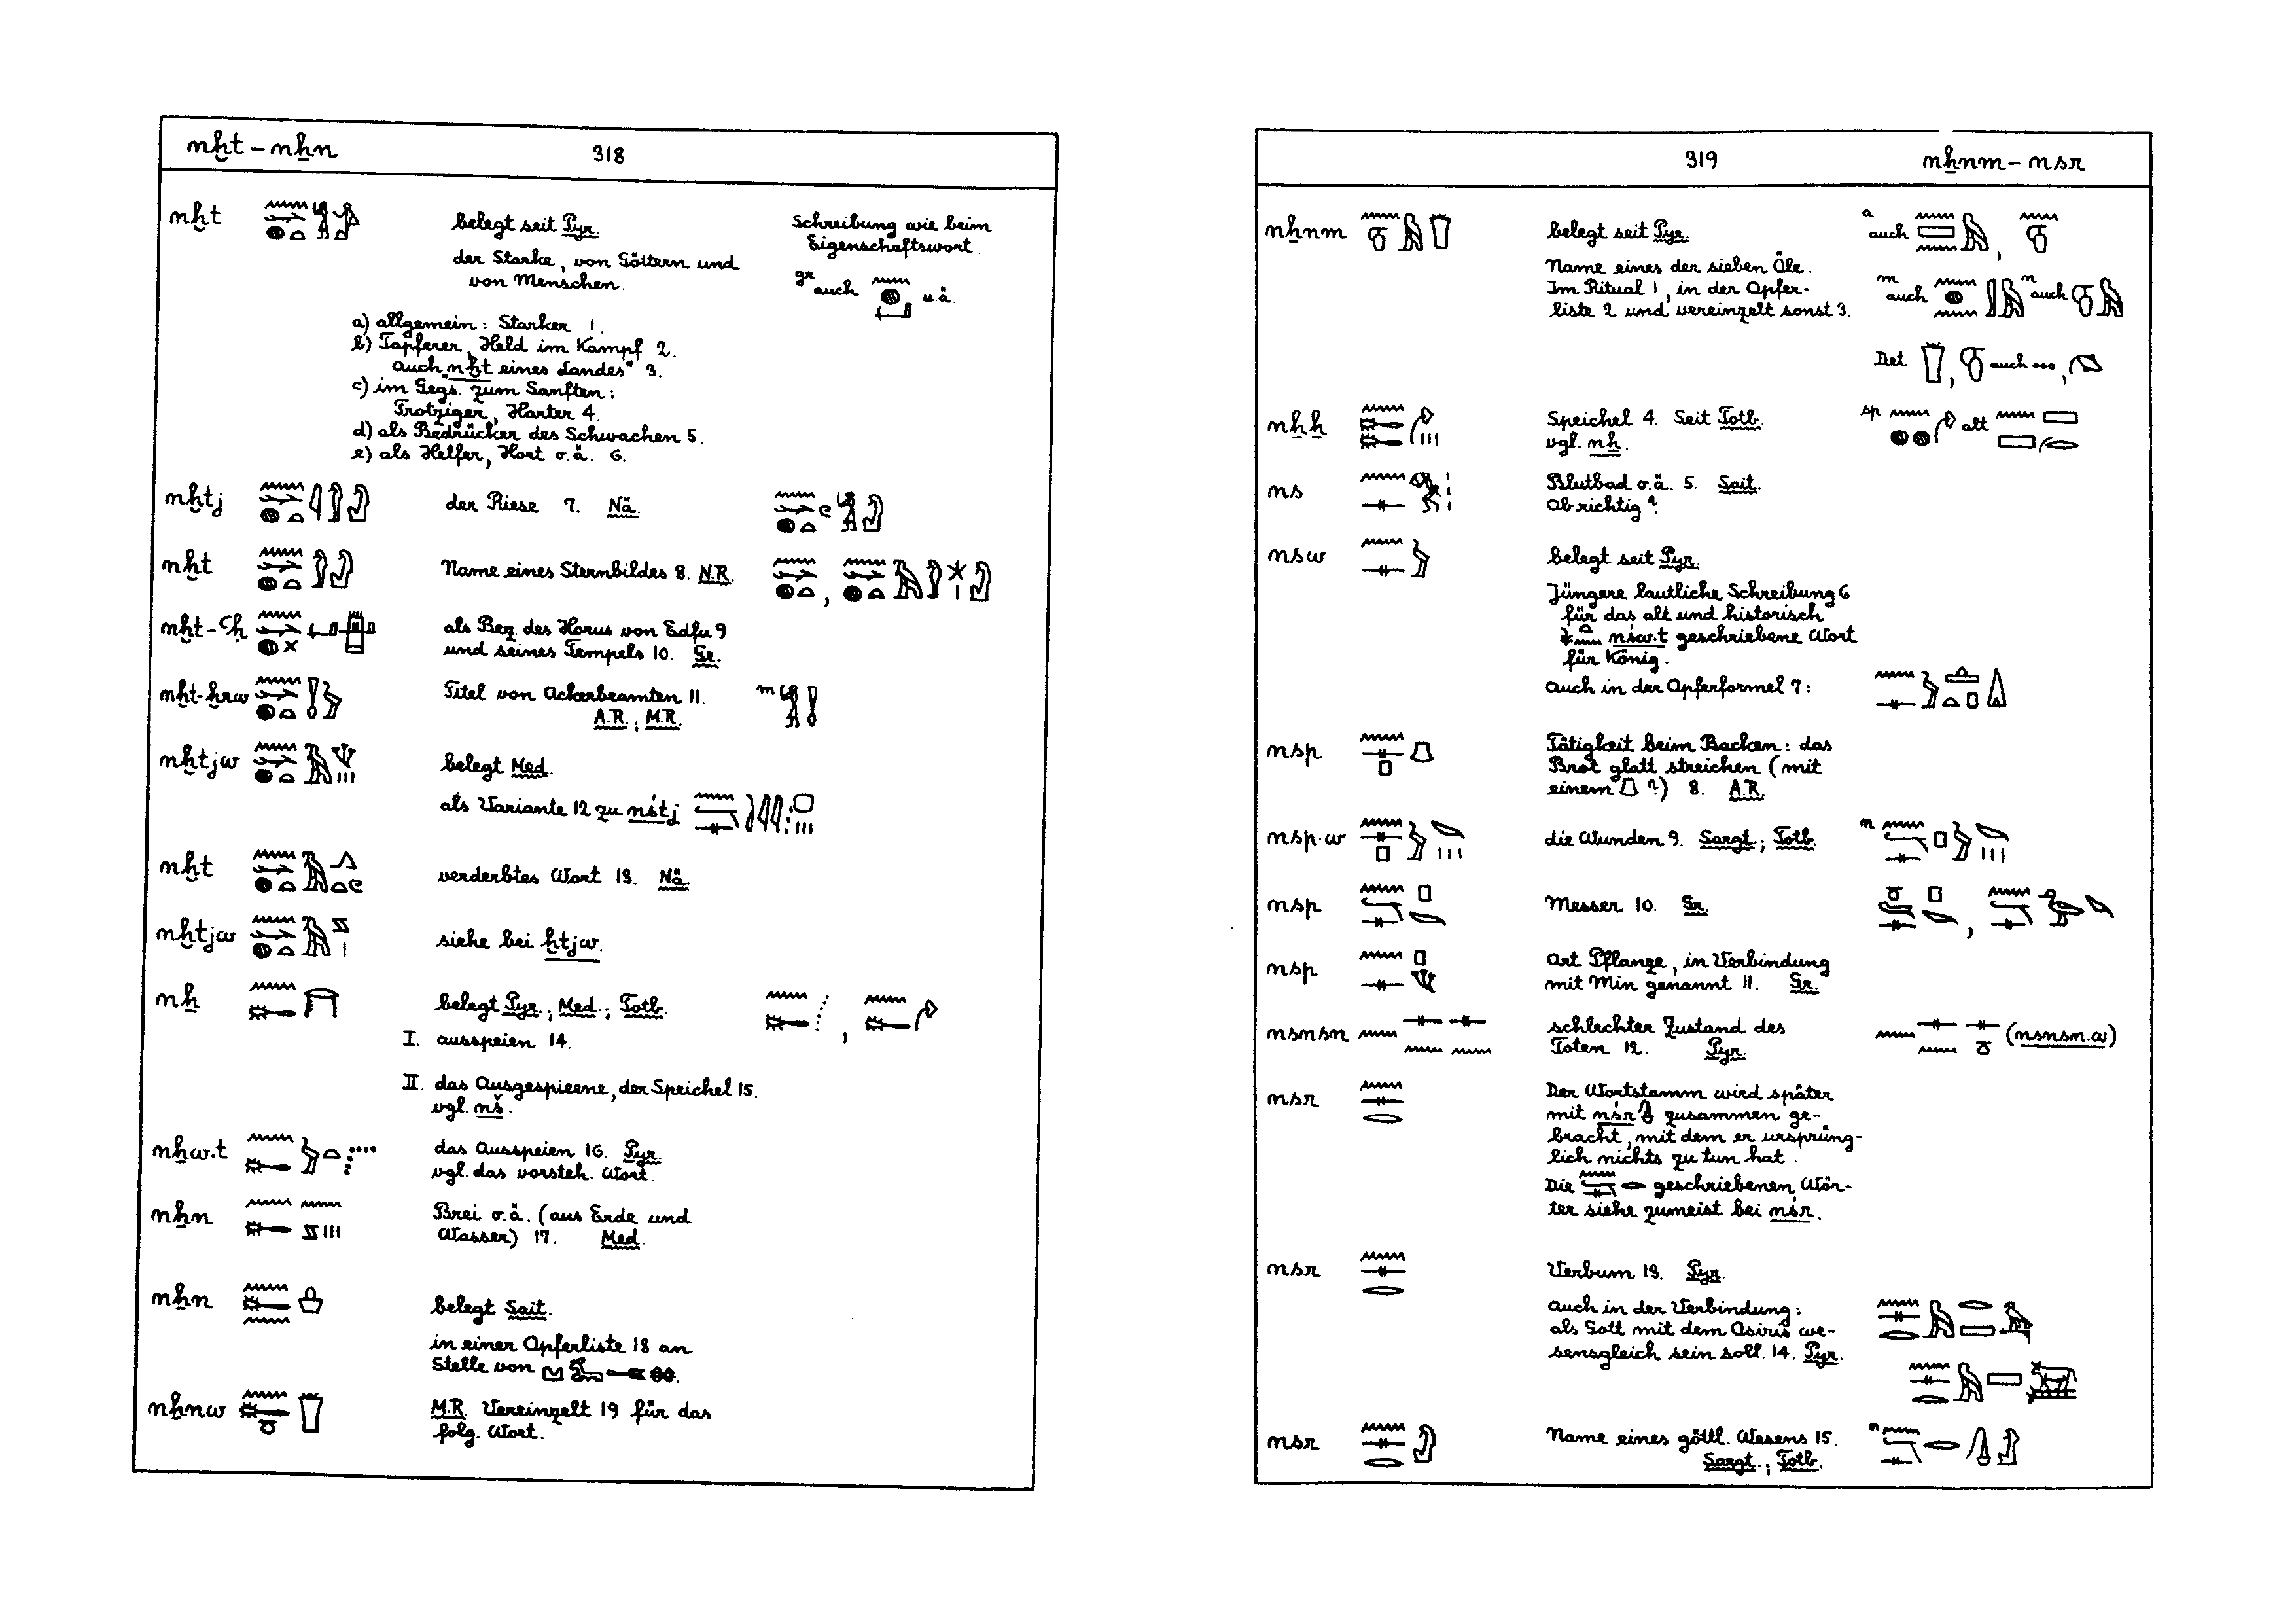 nḫt – nẖn
318
nḫt
belegt seit Pyr.
Schreibung wie beim
Eigenschaftswort.
der Starke, von Göttern und
von Menschen.
gr auch u.ä.
a) allgemein: Starker 1.
b) Tapferer, Held im Kampf 2.
auch „nḫt eines Landes“ 3.
c) im Gegs. zum Sanften:
Trotziger, Harter 4.
d) als Bedrücker des Schwachen 5.
e) als Helfer, Hort o.ä. 6.
nḫtj der Riese 7. Nä.
nḫt Name eines Sternbildes 8. N.R.
nḫt-ꜥḥ als Bez. des Horus von Edfu 9
und seines Tempels 10. Gr.
nḫt-ḫrw Titel von Ackerbeamten 11. m
A.R.; M.R.
nḫtjw belegt Med.
als Variante 12 zu nśtj
nḫt verderbtes Wort 13. Nä.
nḫtjw siehe bei ḫtjw.
nẖ belegt Pyr.; Med.; Totb.
I. ausspeien 14.
II. das Ausgespieene, der Speichel 15.
vgl. nš.
nẖw.t das Ausspeien 16. Pyr.
vgl. das vorsteh. Wort.
nẖn Brei o.ä. (aus Erde und
Wasser) 17. Med.
nẖn belegt Sait.
in einer Opferliste 18 an
Stelle von
nẖnw M.R. Vereinzelt 19 für das
folg. Wort.
319
nẖnm – nsr
nẖnm belegt seit Pyr. a auch
Name eines der sieben Öle.
Im Ritual 1, in der Opfer- m auch n auch
liste 2 und vereinzelt sonst 3.
Det. auch
nẖẖ Speichel 4. Seit Totb. sp alt
vgl. nẖ.
ns Blutbad o.ä. 5. Sait.
Ob richtig?
nsw belegt seit Pyr.
Jüngere lautliche Schreibung 6
für das alt und historisch
nśw.t geschriebene Wort
für König.
auch in der Opferformel 7:
nsp Tätigkeit beim Backen: das
Brot glatt streichen (mit
einem ?) 8. A.R.
nsp.w die Wunden 9. Sargt.; Totb. n
nsp Messer 10. Gr.
nsp Art Pflanze, in Verbindung
mit Min genannt 11. Gr.
nsnsn schlechter Zustand des (nsnsn.w)
Toten 12. Pyr.
nsr Der Wortstamm wird später
mit nśr zusammen ge-
bracht, mit dem er ursprüng-
lich nichts zu tun hat.
Die geschriebenen Wör-
ter siehe zumeist bei nśr.
nsr Verbum 13. Pyr.
auch in der Verbindung:
als Gott mit dem Osiris we-
sensgleich sein soll. 14. Pyr.
nsr Name eines göttl. Wesens 15. n
Sargt.; Totb.